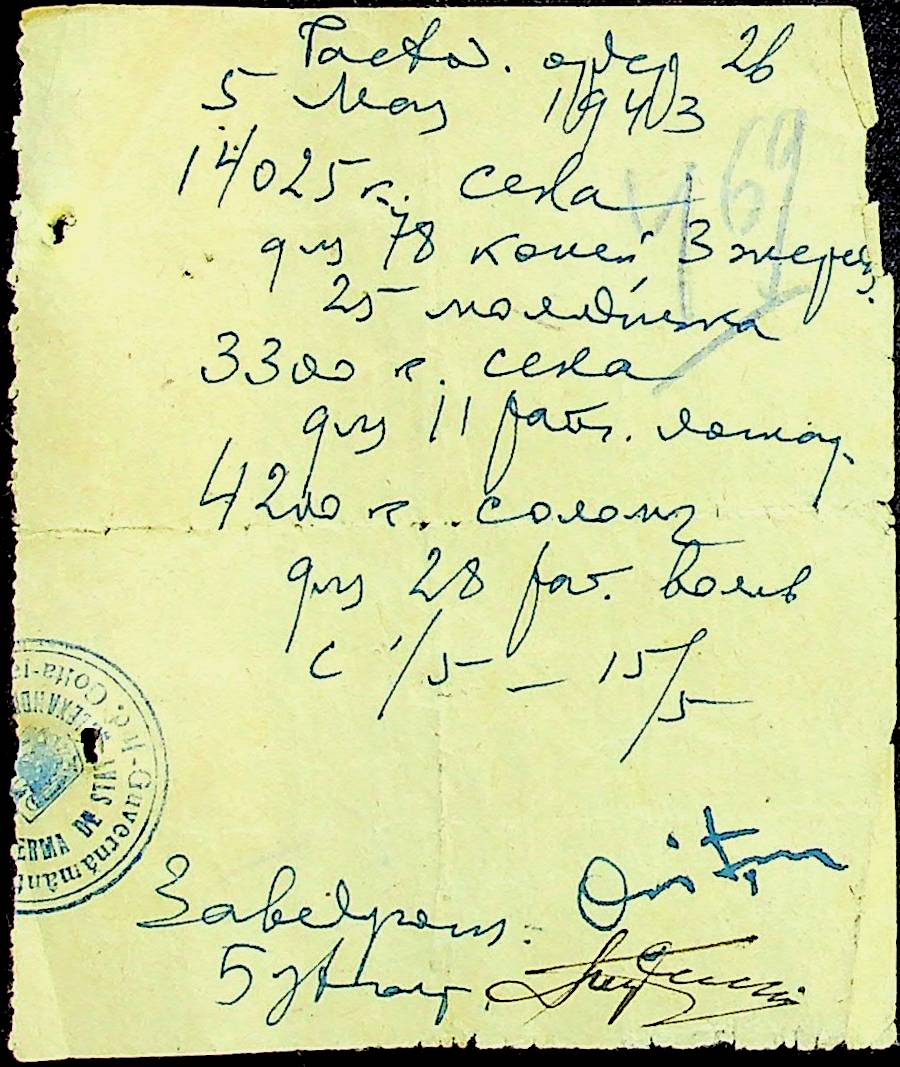 Расход. ордер 26
5 Мая 1943
14025 к. сена
для 78 коней 3 жереб.
25 молодняка
3300 к. сена
для 11 рабч. лошад.
4200 к. соломы
для 28 раб. волов
с 1/5 – 15/5
169
Guvernământ
FERMA DE STAT
ALEXAND
Заведующ.
Бухгалт.